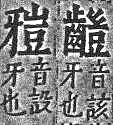 音該
牙也
音設
牙也